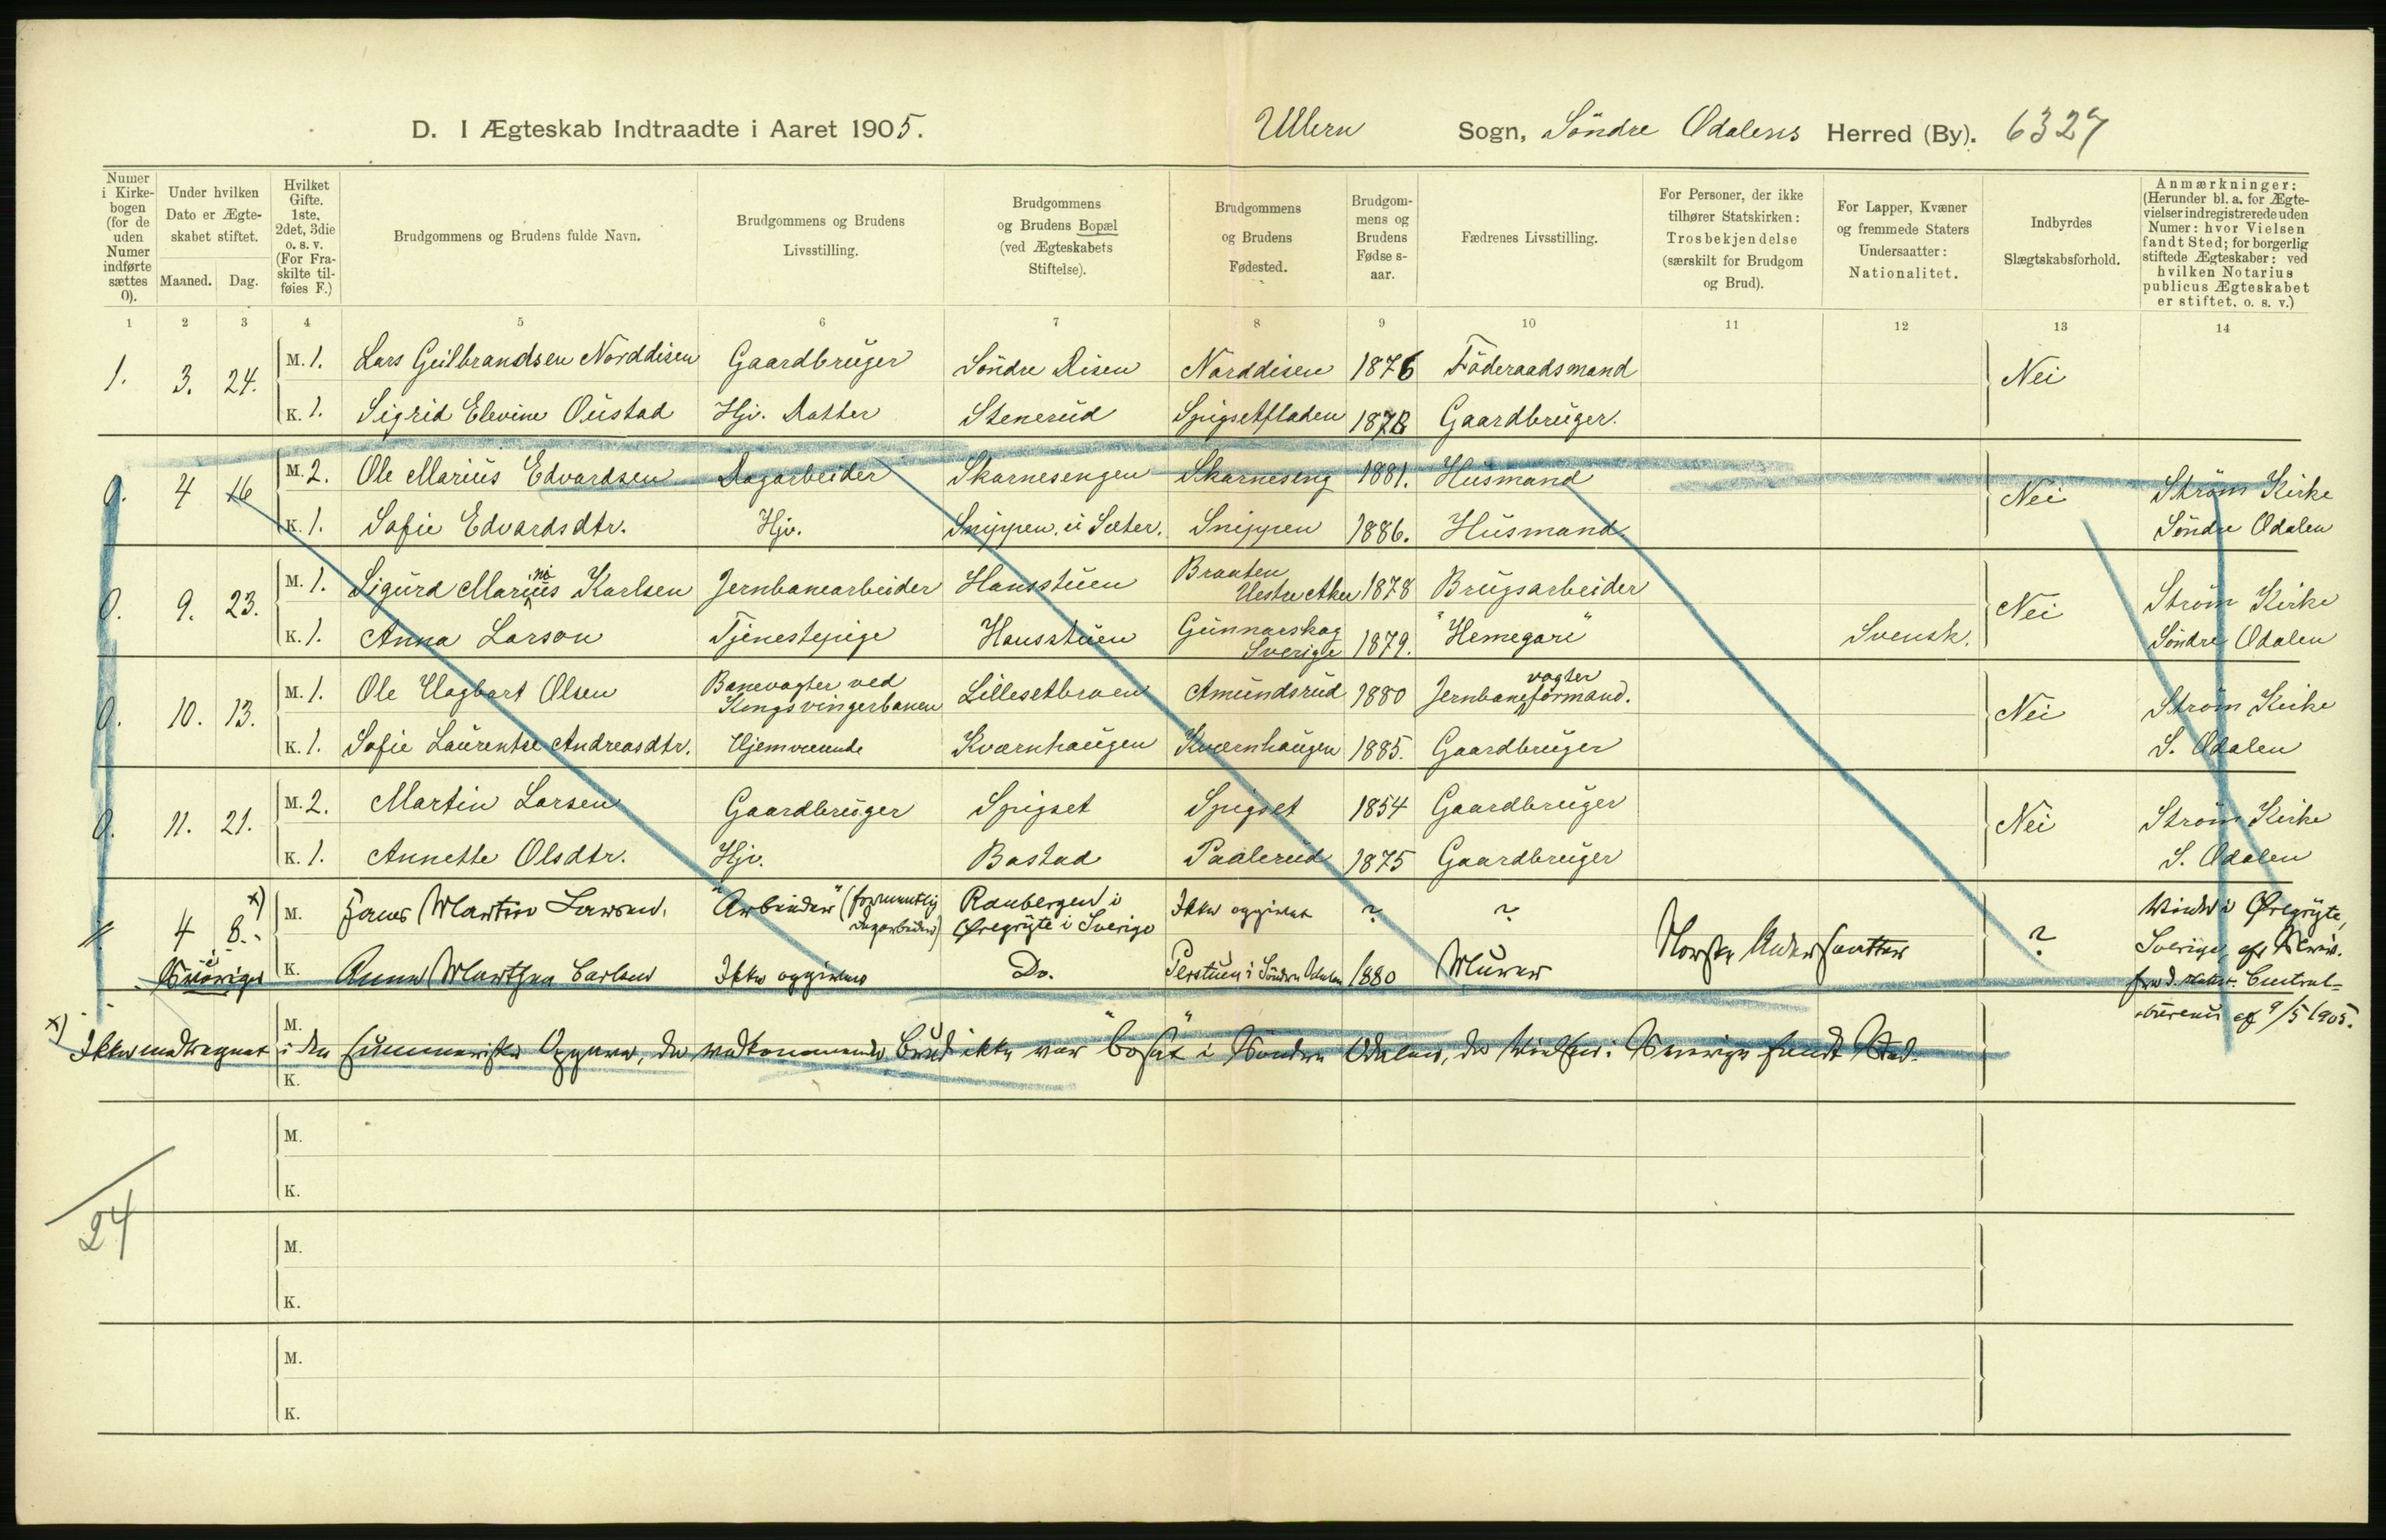 D. I Ægteskab Indtraadte i Aaret 1905. Ullern Sogn, Söndre Odalens Herred (By). 6327
Numer i Kirke-bogen (for de uden Numer indførte sættes 0).
Under hvilken Dato er Ægte-skabet stiftet.
Maaned. Dag.
Hvilket Gifte. 1ste, 2det, 3die o. s. v. (For Fra-skilte til-føies F.)
Brudgommens og Brudens fulde Navn.
Brudgommens og Brudens Livsstilling.
Brudgommens og Brudens Bopæl (ved Ægteskabets Stiftelse).
Brudgommens og Brudens Fødested.
Brudgom-mens og Brudens Fødse s-aar.
Fædrenes Livsstilling.
For Personer, der ikke tilhører Statskirken: Trosbekjendelse (særskilt for Brudgom og Brud).
For Lapper, Kvæner og fremmede Staters Undersaatter: Nationalitet.
Indbyrdes Slægtskabsforhold.
Anmærkninger: (Herunder bl. a. for Ægte-vielser indregistrerede uden Numer: hvor Vielsen fandt Sted; for borgerlig stiftede Ægteskaber: ved hvilken Notarius publicus Ægteskabet er stiftet. o. s. v.)
1 2 3 4 5 6 7 8 9 10 11 12 13 14
1. 3. 24. M. 1. Lars Gulbrandsen Norddisen Gaardbruger Söndre Disen Norddisen 1876 Föderaadsmand Nei
K. 1. Sigrid Elevine Oustad Hjv. Datter Stenerud Spigsetfladen 1878 Gaardbruger.
0. 4 16 M. 2. Ole Marius Edvardsen Dagarbeider Skarnesengen Skarneseng 1881. Husmand Nei Ström Kirke
K. 1. Sofie Edvardsdtr. Hjv. Snippen. u. Sæter. Snippen 1886. Husmand. Söndre Odalen
0. 9. 23. M. 1. Sigurd Marinius Karlsen Jernbanearbeider Hansstuen Braaten Vestre Aker 1878 Brugsarbeider Nei Ström Kirke
K. 1. Anna Larson Tjenestepige Hansstuen Gunnarskog Sverige 1879. "Hemegare" Svensk. Söndre Odalen
0. 10. 13. M. 1. Ole Hagbart Olsen Banevogter ved Kongsvingerbanen Lillesetbraen Amundsrud 1880 Jernbanevogterformand. Nei Ström Kirke
K. 1. Sofie Laurentse Andreasdtr. Hjemværende Kværnhaugen Kværnhaugen 1885. Gaardbruger S. Odalen
0. 11. 21. M. 2. Martin Larsen Gaardbruger Spigset Spigset 1854 Gaardbruger Nei Ström Kirke
K. 1. Annette Olsdtr. Hjv. Bastad Paalerud 1875 Gaardbruger S. Odalen
4 8. x) M. Martin Larsen. "Arbeider" (formentlig Dagarbeider) Ranbergen i Øregryte i Sverige Ikke opgivet ? ? Norske Undersaatter ? Viede i Øregryte,
i Sverige K. Anna Marthea Carlsen Ikke opgivet Do. Perstuen i Söndre Odalen 1880 Murer Sverige,
Central-
büreau af 9/5 1905.
x) Ikke medregnet i den summariske Opgave, da vedkommende Brud ikke var "bosat" i Söndre Odalen, da Vielsen i Sverige fandt Sted.
M.
K.
M.
K.
24
M.
K.
M.
K.
M.
K.